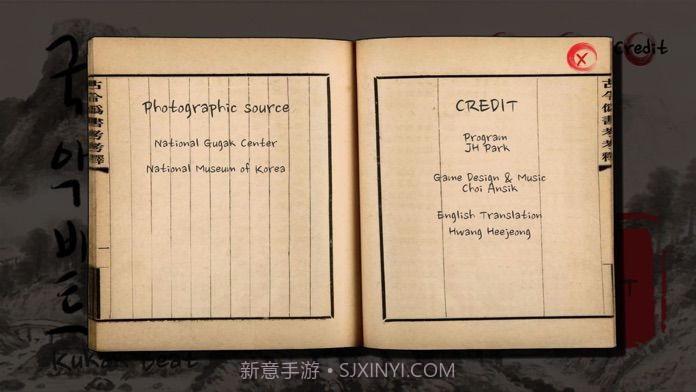 국악비트
Kukak Beat
Credit
X
Photographic source
National Gugak Center
National Museum of Korea
CREDIT
Program
JH Park
Game Design & Music
Choi Ansik
English Translation
Hwang Heejeong
T
新意手游 • SJXINYI.COM